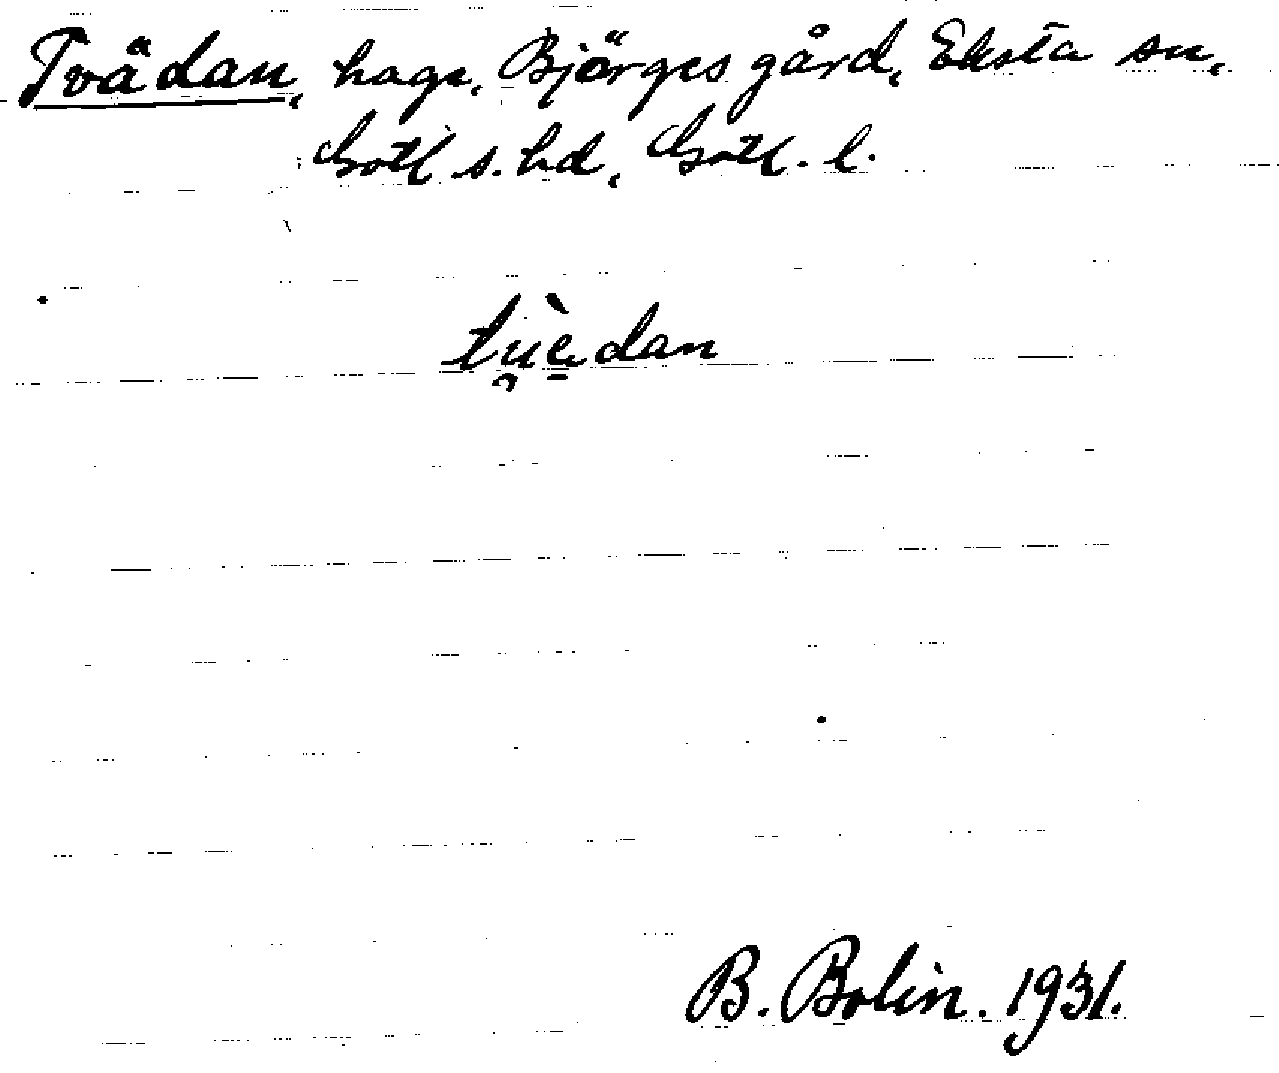 Tvädan, hage, Björges gård, Eksta sn,
Gotl s. hd, Gotl. l.
tu̯èdan
B. Bolin. 1931.